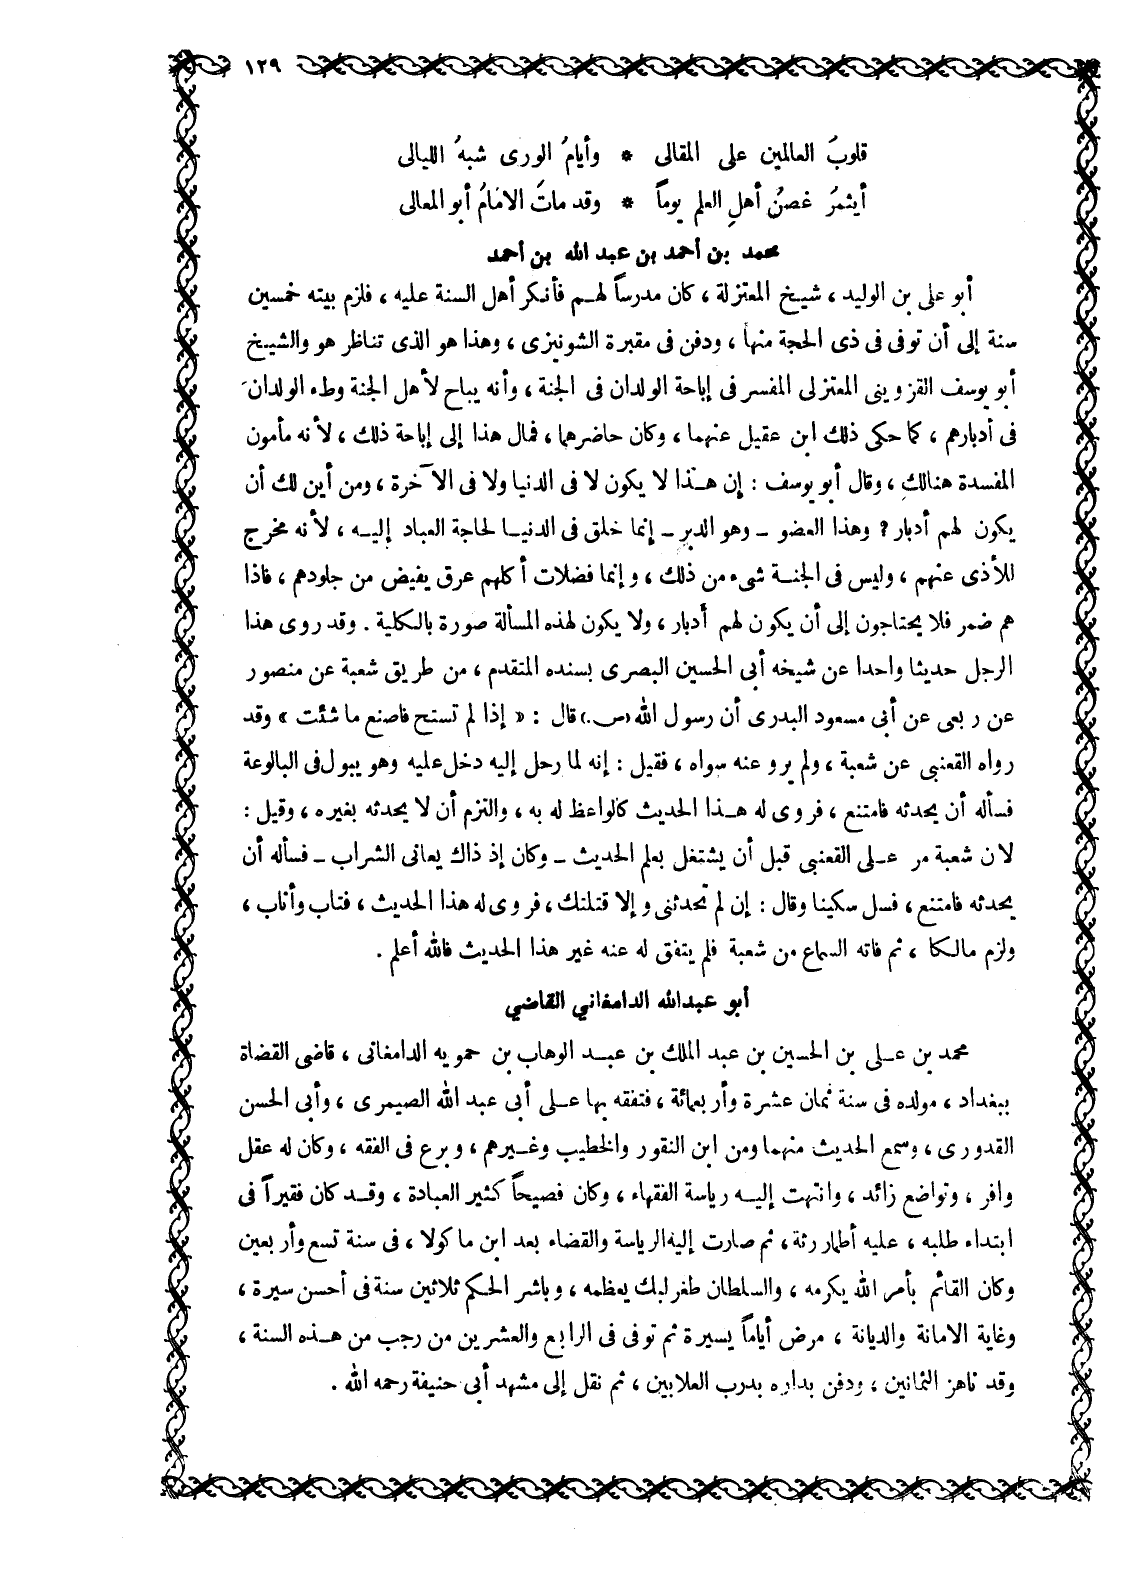 ١٢٩
قلوبُ العالمين على المقالى * وأيامُ الورى شبهُ الليالى
أيثمرُ غصنُ أهلِ العلم يوماً * وقد ماتَ الامَامُ أبو المعالى
محمد بن أحمد بن عبد الله بن أحمد
أبو على بن الوليد ، شيخ المعتزلة ، كان مدرساً لهم فأنكر أهل السنة عليه ، فلزم بيته خمسين
سنة إلى أن توفى فى ذى الحجة منها ، ودفن فى مقبرة الشونيزى ، وهذا هو الذى تناظر هو والشيخ
أبو يوسف القزوينى المعتزلى المفسر فى إباحة الولدان فى الجنة ، وأنه يباح لأهل الجنة وطء الولدان
فى أدبارهم ، كما حكى ذلك ابن عقيل عنهما ، وكان حاضرهما ، فمال هذا إلى إباحة ذلك ، لأنه مأمون
المفسدة هنالك ، وقال أبو يوسف : إن هذا لا يكون لا فى الدنيا ولا فى الآخرة ، ومن أين لك أن
يكون لهم أدبار ؟ وهذا العضو ــ وهو الدبر ــ إنما خلق فى الدنيا لحاجة العباد إليه ، لأنه مخرج
للأذى عنهم ، وليس فى الجنة شىء من ذلك ، وإنما فضلات أكلهم عرق يفيض من جلودهم ، فاذا
هم ضمر فلا يحتاجون إلى أن يكون لهم أدبار ، ولا يكون لهذه المسألة صورة بالكلية . وقد روى هذا
الرجل حديثا واحدا عن شيخه أبى الحسين البصرى بسنده المتقدم ، من طريق شعبة عن منصور
عن ربعى عن أبى مسعود البدرى أن رسول الله (ص) قال : « إذا لم تستح فاصنع ما شئت » وقد
رواه القعنبى عن شعبة ، ولم يرو عنه سواه ، فقيل : إنه لما رحل إليه دخل عليه وهو يبول فى البالوعة
فسأله أن يحدثه فامتنع ، فروى له هذا الحديث كالواعظ له به ، والتزم أن لا يحدثه بغيره ، وقيل :
لان شعبة مر على القعنبى قبل أن يشتغل بعلم الحديث ــ وكان إذ ذاك يعانى الشراب ــ فسأله أن
يحدثه فامتنع ، فسل سكينا وقال : إن لم تحدثنى وإلا قتلتك ، فروى له هذا الحديث ، فتاب وأناب ،
ولزم مالكا ، ثم فاته السماع من شعبة فلم يتفق له عنه غير هذا الحديث فالله أعلم .
أبو عبدالله الدامغاني القاضي
محمد بن على بن الحسين بن عبد الملك بن عبد الوهاب بن حمويه الدامغانى ، قاضى القضاة
ببغداد ، مولده فى سنة ثمان عشرة وأربعمائة ، فتفقه بها على أبى عبد الله الصيمرى ، وأبى الحسن
القدورى ، وسمع الحديث منهما ومن ابن النقور والخطيب وغيرهم ، وبرع فى الفقه ، وكان له عقل
وافر ، وتواضع زائد ، وانتهت إليه رياسة الفقهاء ، وكان فصيحاً كثير العبادة ، وقد كان فقيراً فى
ابتداء طلبه ، عليه أطمار رثة ، ثم صارت إليه الرياسة والقضاء بعد ابن ماكولا ، فى سنة تسع وأربعين
وكان القائم بأمر الله يكرمه ، والسلطان طغرلبك يعظمه ، وباشر الحكم ثلاثين سنة فى أحسن سيرة ،
وغاية الامانة والديانة ، مرض أياماً يسيرة ثم توفى فى الرابع والعشرين من رجب من هذه السنة ،
وقد ناهز الثمانين ، ودفن بداره بدرب العلابين ، ثم نقل إلى مشهد أبى حنيفة رحمه الله .